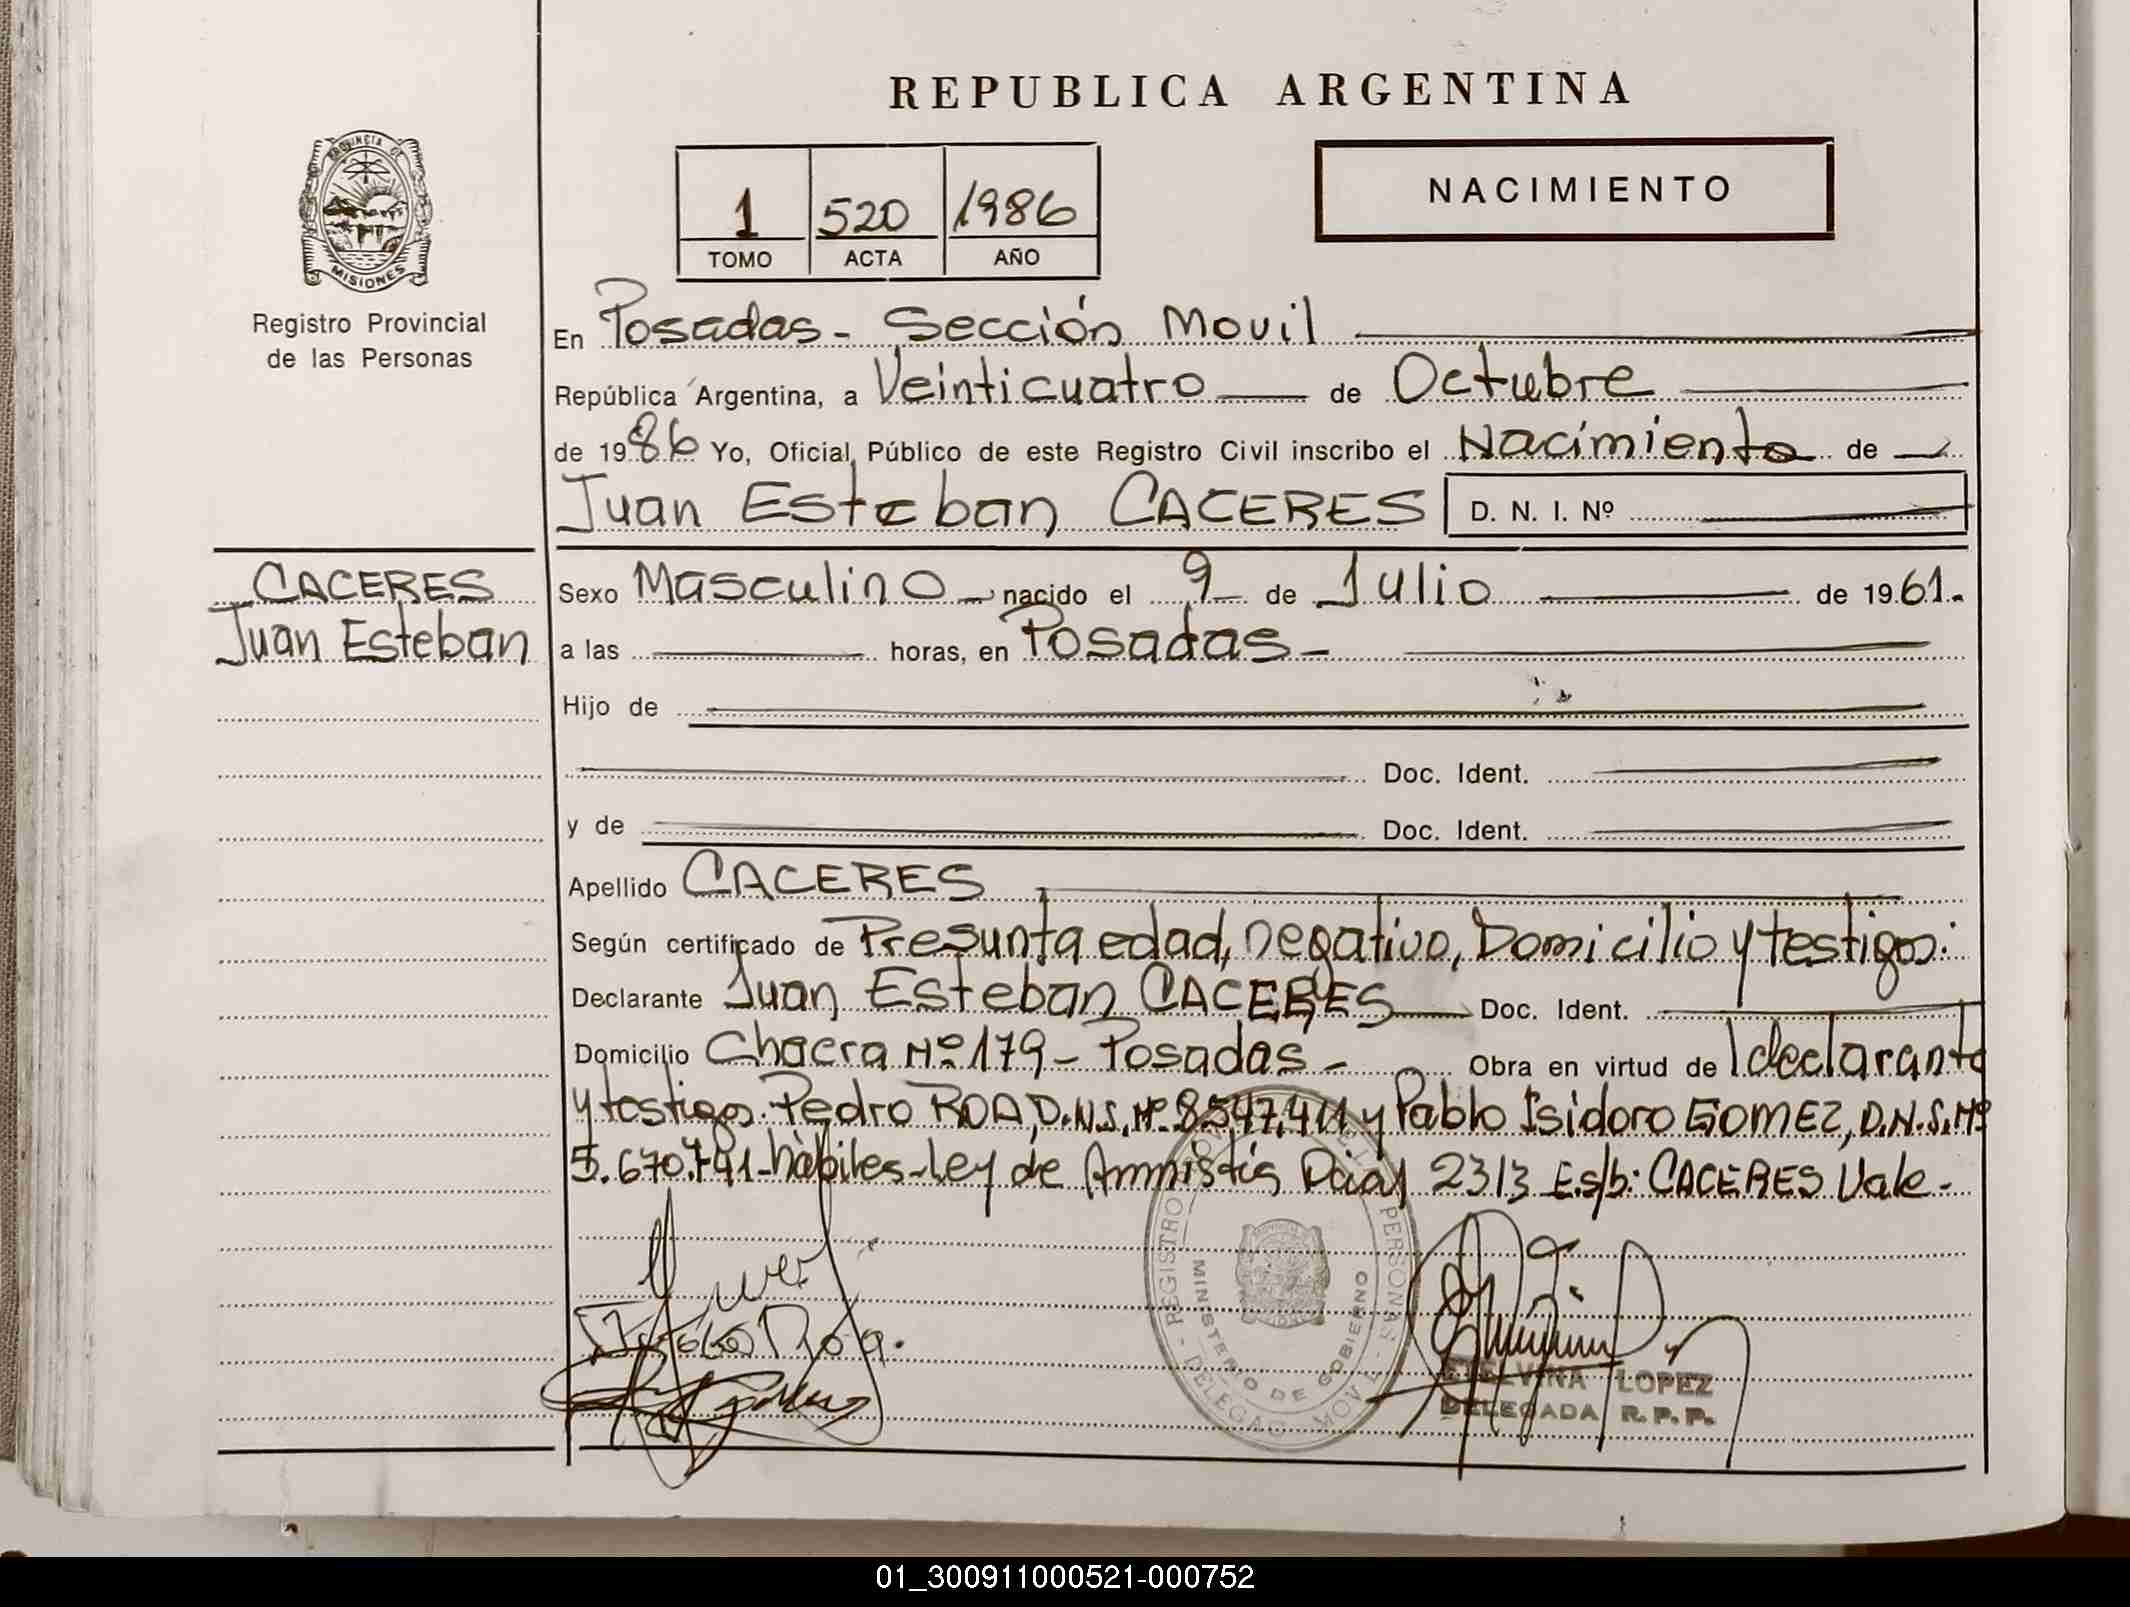 REPUBLICA ARGENTINA
PROVINCIA DE
MISIONES
Registro Provincial
de las Personas
1 520 1986
TOMO ACTA AÑO
NACIMIENTO
En Posadas - Sección Movil
República Argentina, a Veinticuatro de Octubre
de 1986 Yo, Oficial Público de este Registro Civil inscribo el Nacimiento de
Juan Esteban CACERES D. N. I. Nº
CACERES
Juan Esteban
Sexo Masculino nacido el 9 de Julio de 1961.
a las horas, en Posadas -
Hijo de
Doc. Ident.
y de Doc. Ident.
Apellido CACERES
Según certificado de Presunta edad, negativo, Domicilio y testigos:
Declarante Juan Esteban CACERES Doc. Ident.
Domicilio Chacra Nº 179 - Posadas - Obra en virtud de l declarante
y testigos: Pedro ROA, D.N.I. Nº 8.547.411 y Pablo Isidoro GOMEZ, D.N.I. Nº
5.670.791 - hàbiles - Ley de Amnistía Pcial 2313 E.s/b: CACERES Vale -
REGISTRO PERSONAS - DELEGAC MOVIL
MINISTERIO DE GOBIERNO
Roa.
ETELVINA LOPEZ
DELEGADA R. P. P.
01_300911000521-000752